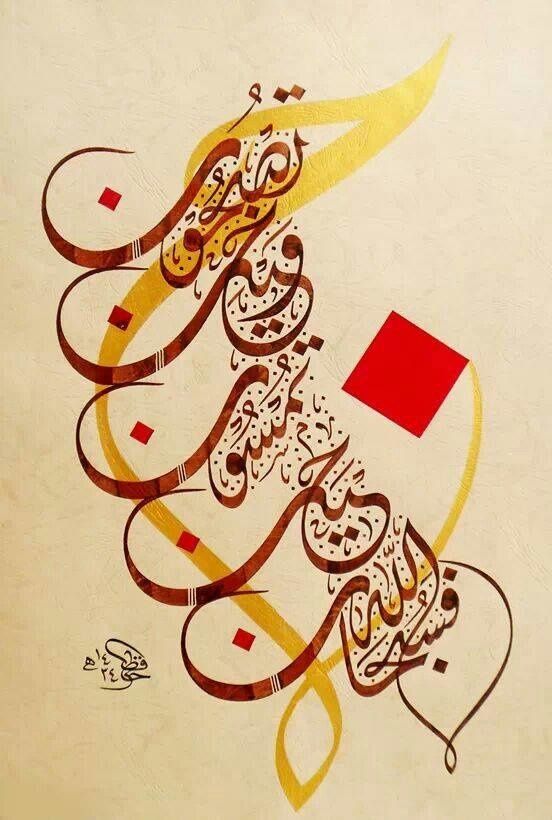 فسبحان الله
حين
تمسون
وحين
تصبحون
١٤٣٤ هـ